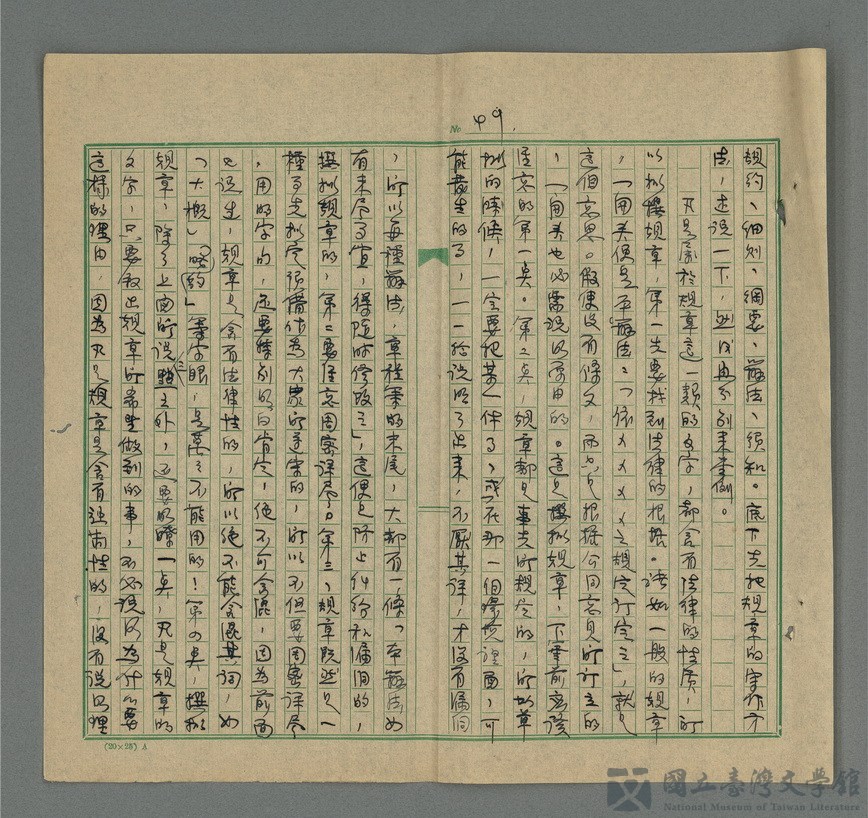 No 49.
規約、細則、綱要、辦法、須知。底下先把規章的寫作方
法，述說一下，然後再分別來舉例。
凡是屬於規章這一類的文字，都含有法律的性質，所
以擬撰規章，第一先要找到法律的根據。譬如一般的規章
，一開头便是「本辦法」「依××××之規定訂定之」，就是
這個意思。假使沒有條文，而只是根據公同意見所訂立的
，一開头也必需說明原由的。這是撰擬規章，下筆前應該
注意的第一點。第二點，規章都是事先所規定的，所以草
擬的時候，一定要把某一件事，或在那一個環境裡面，可
能發生的事，一一給說明了出來，不厭其詳，才沒有漏洞
，所以每種辦法，章程等的末尾，大都有一條「本辦法如
有未尽事宜，得隨時修改之」，這便是防止什麼和漏洞的，
撰擬規章的，第二要注意周密詳尽。第三，規章既然是一
種事先擬定預備給大家所遵守的，所以不但要周密詳尽
，用的字句，還要特別明白肯定，絕不可含混，因為前面
也說過，規章是含有法律性的，所以絕不能含混其詞，如
「大概」「略約」等字眼，是萬萬不能用的！第四點，撰擬
規章，除了上面所說三點之外，还要明瞭一點，凡是規章的
文字，只要敘出規章所希望做到的事，不必說明為什么要
這樣的理由，因為凡是規章是含有強制性的，沒有說明理
(20×25) A
國立臺灣文學館
National Museum of Taiwan Literature